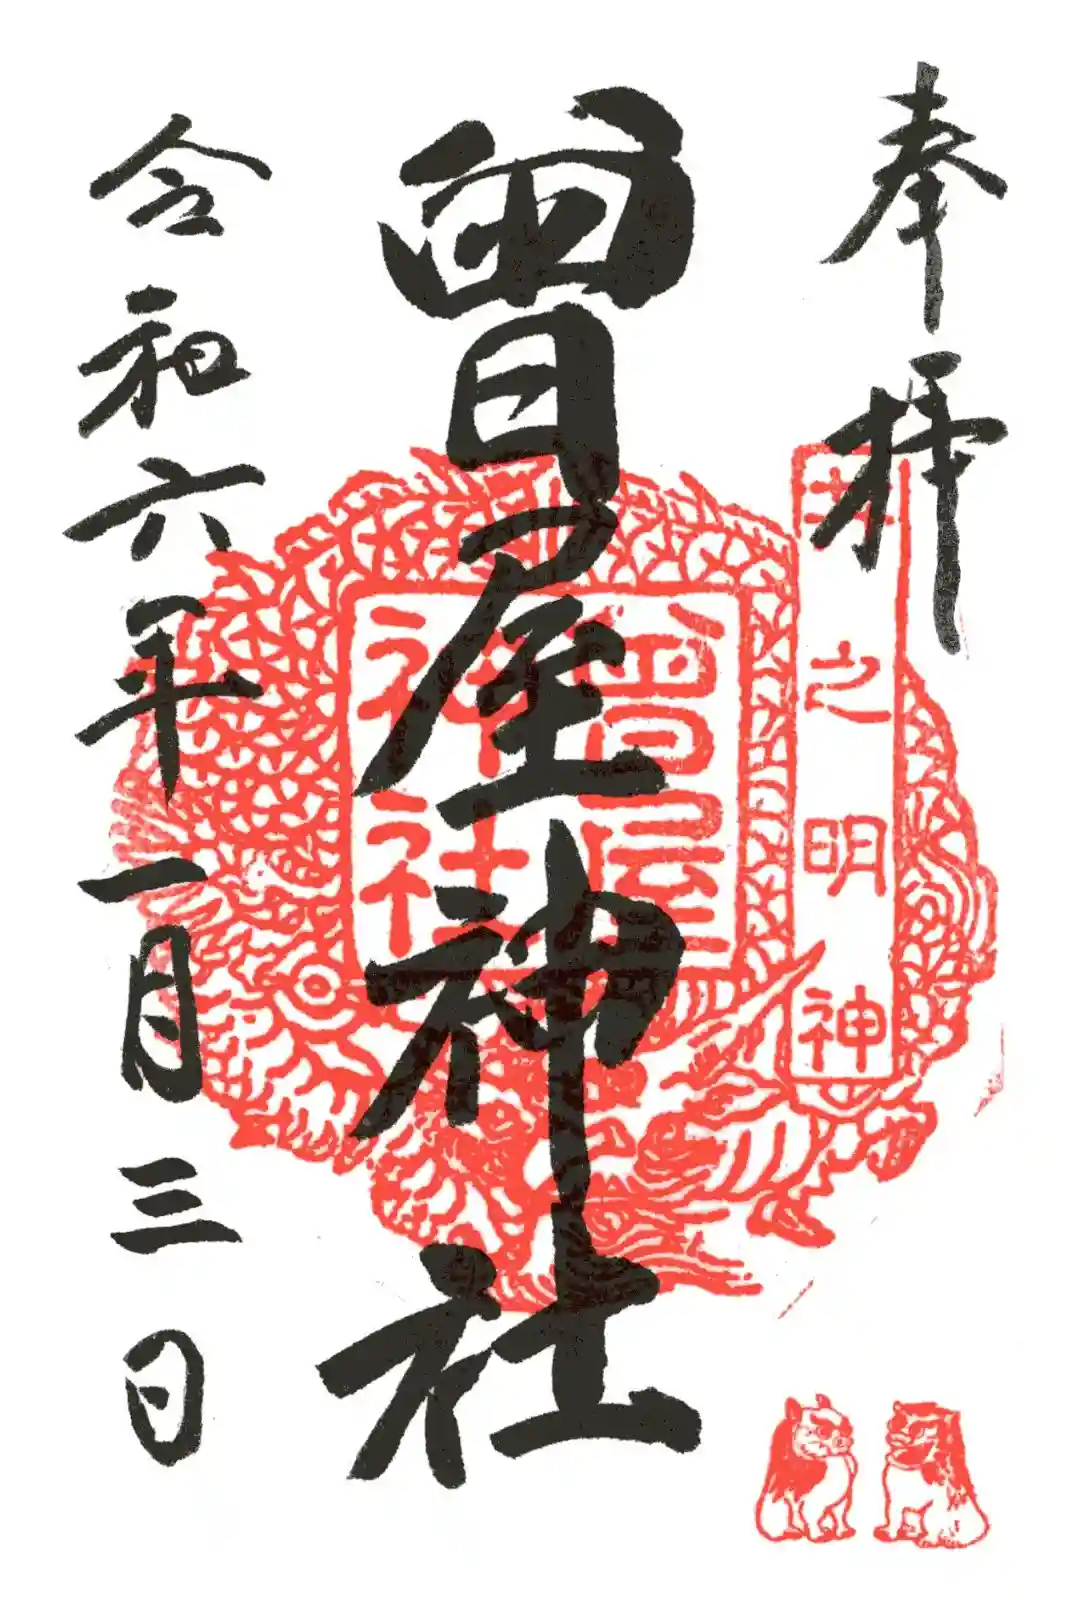 奉拝
井之明神
曽屋神社
曽屋
神社
令和六年一月三日